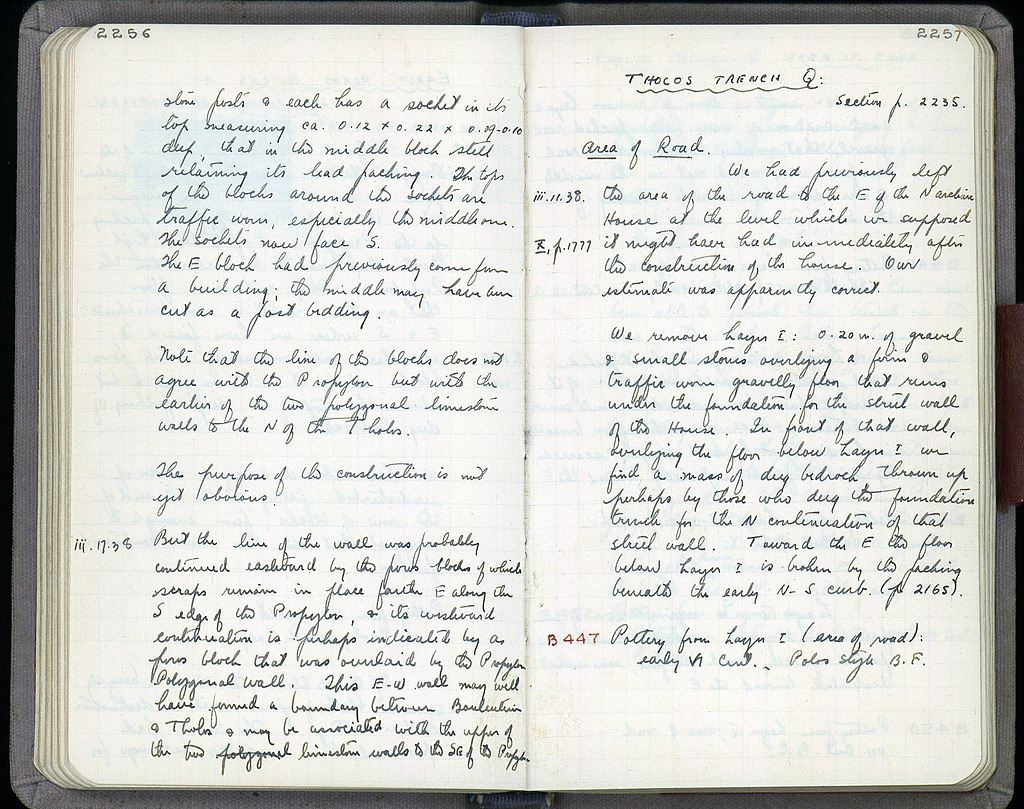 2256
stone posts & each has a socket in its
top measuring ca. 0.12 x 0.22 x 0.09-0.10
deep, that in the middle block still
retaining its lead packing. The tops
of the blocks around the sockets are
traffic worn, especially the middle one.
The sockets now face S.
The E block had previously come from
a building; the middle may have been
cut as a post bedding.
Note that the line of the blocks does not
agree with the Propylon but with the
earlier of the two polygonal limestone
walls to the N of the Tholos.
The purpose of the construction is not
yet obvious.
iii.17.38 But the line of the wall was probably
continued eastward by the poros blocks of which
scraps remain in place farther E along the
S edge of the Propylon, & its westward
continuation is perhaps indicated by a
poros block that was overlaid by the Propylon
Polygonal wall. This E-W wall may well
have formed a boundary between Bouleuterion
& Tholos & may be associated with the upper of
the two polygonal limestone walls to the SE of the Propylon
2257
THOLOS TRENCH Q:
Section p. 2235.
Area of Road.
We had previously left
iii.11.38. the area of the road to the E of the N archaic
House at the level which we supposed
X, p.1777 it might have had immediately after
the construction of the house. Our
estimate was apparently correct.
We remove Layer I: 0.20 m. of gravel
& small stones overlying a firm &
traffic worn gravelly floor that runs
under the foundation for the street wall
of the House. In front of that wall,
overlying the floor below Layer I we
find a mass of dug bedrock, thrown up
perhaps by those who dug the foundation
trench for the N continuation of that
street wall. Toward the E the floor
below Layer I is broken by the packing
beneath the early N-S curb. (p 2165).
B 447 Pottery from Layer I (area of road):
early VI cent. Polos style B.F.